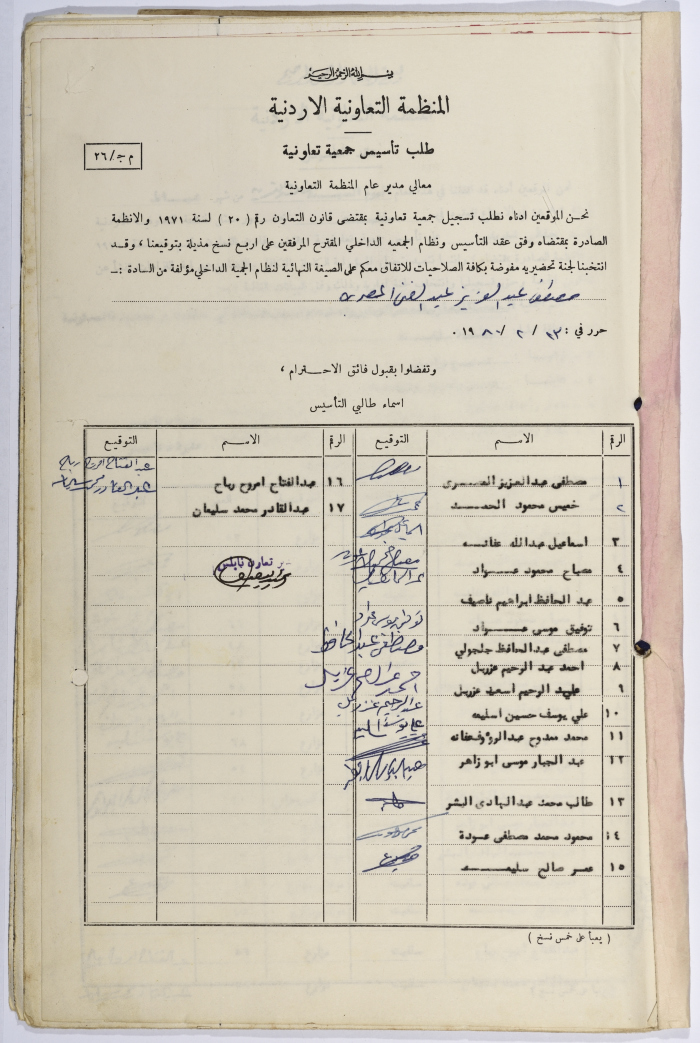 بسم الله الرحمن الرحيم
المنظمة التعاونية الاردنية
طلب تأسيس جمعية تعاونية
م ج/٢٦
معالي مدير عام المنظمة التعاونية
نحن الموقعين ادناه نطلب تسجيل جمعية تعاونية بمقتضى قانون التعاون رقم (٢٠) لسنة ١٩٧١ والانظمة
الصادرة بمقتضاه وفق عقد التأسيس ونظام الجمعيه الداخلي المقترح المرفقين على اربع نسخ مذيلة بتوقيعنا ، وقد
انتخبنا لجنة تحضيريه مفوضة بكافة الصلاحيات للاتفاق معكم على الصيغة النهائية لنظام الجمية الداخلي مؤلفة من السادة :ـ
مصطفى عبد العزيز عبد الغني المصري
حرر في : ٢٣ / ٢ / ١٩٨٠ .
وتفضلوا بقبول فائق الاحترام ،
اسماء طالبي التأسيس
الرقم الاسم التوقيع الرقم الاسم التوقيع
١ مصطفى عبد العزيز المصري ١٦ عبد الفتاح امروح رباح
٢ خميس محمود الحمد ١٧ عبد القادر محمد سليمان
٣ اسماعيل عبد الله
٤ مصباح محمود عواد
تعاون نابلس
٥ عبد الحافظ ابراهيم ناصيف
٦ توفيق موسى عواد توفيق موسى عواد
٧ مصطفى عبد الحافظ جلجولي مصطفى عبد الحافظ
٨ احمد عبد الرحيم عزريل
٩ عبد الرحيم اسعد عزريل عبد الرحيم عزريل
١٠ علي يوسف حسين اسليمه
١١ محمد ممدوح عبد الرؤوف
١٢ عبد الجبار موسى ابو زاهر
١٣ طالب محمد عبد الهادي البشر
١٤ محمود محمد مصطفى عودة
١٥ عمر صالح سليم
( يعبأ على خمس نسخ )